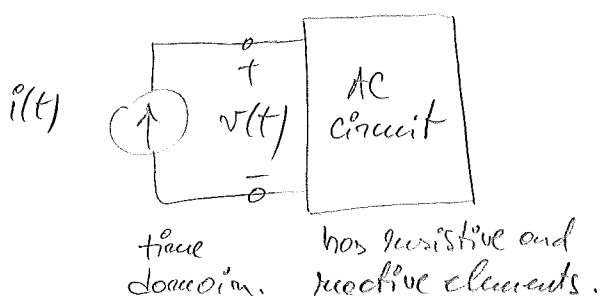 i(t)
+
v(t)
-
AC
circuit
time
domain.
has resistive and
reactive elements.